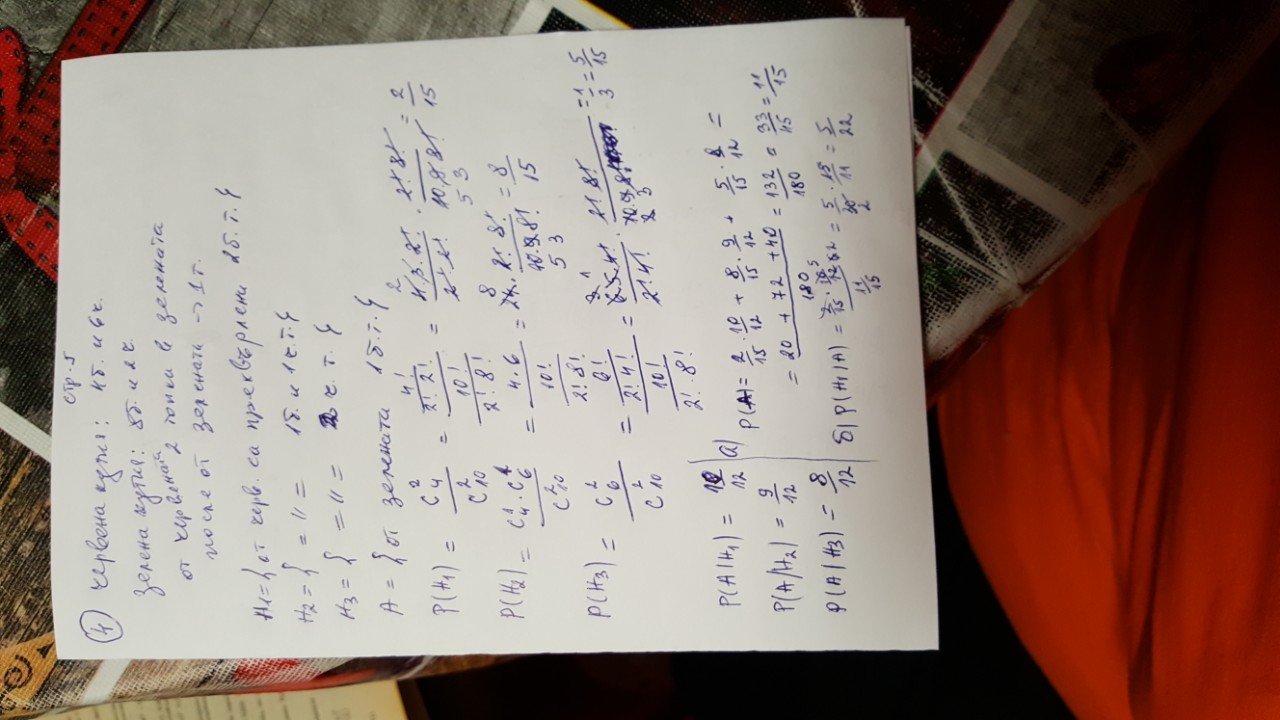 стр. 5
④ червена кутия: 4б. и 6ч.
зелена кутия: 8б. и 2ч.
от червената 2 топки в зелената
после от зелената → 1т.
H1 = { от черв. са прехвърлени 2б. т. }
H2 = { = 〃 = 1б. и 1ч. т. }
H3 = { = 〃 = 2 ч. т. }
A = { от зелената 1б. т. }
P(H1) = C_4^2 / C_10^2 = (4! / 2! 2!) / (10! / 2! 8!) = 4.3.2! / 2! 2! . 2! 8! / 10.9.8! = 2/15
P(H2) = C_4^1 . C_6^1 / C_10^2 = 4.6 / (10! / 2! 8!) = 24. 2! 8! / 10.9.8! = 8/15
P(H3) = C_6^2 / C_10^2 = (6! / 2! 4!) / (10! / 2! . 8!) = 6.5.4! / 2! 4! . 2! 8! / 10.9.8! = 1/3 = 5/15
P(A|H1) = 10/12
P(A/H2) = 9/12
P(A|H3) = 8/12
а) P(A) = 2/15 . 10/12 + 8/15 . 9/12 + 5/15 . 8/12 =
= 20 + 72 + 40 / 180 = 132/180 = 33/45 = 11/15
б) P(H1|A) = (2/15 . 10/12) / (11/15) = 5/30 . 15/11 = 5/22